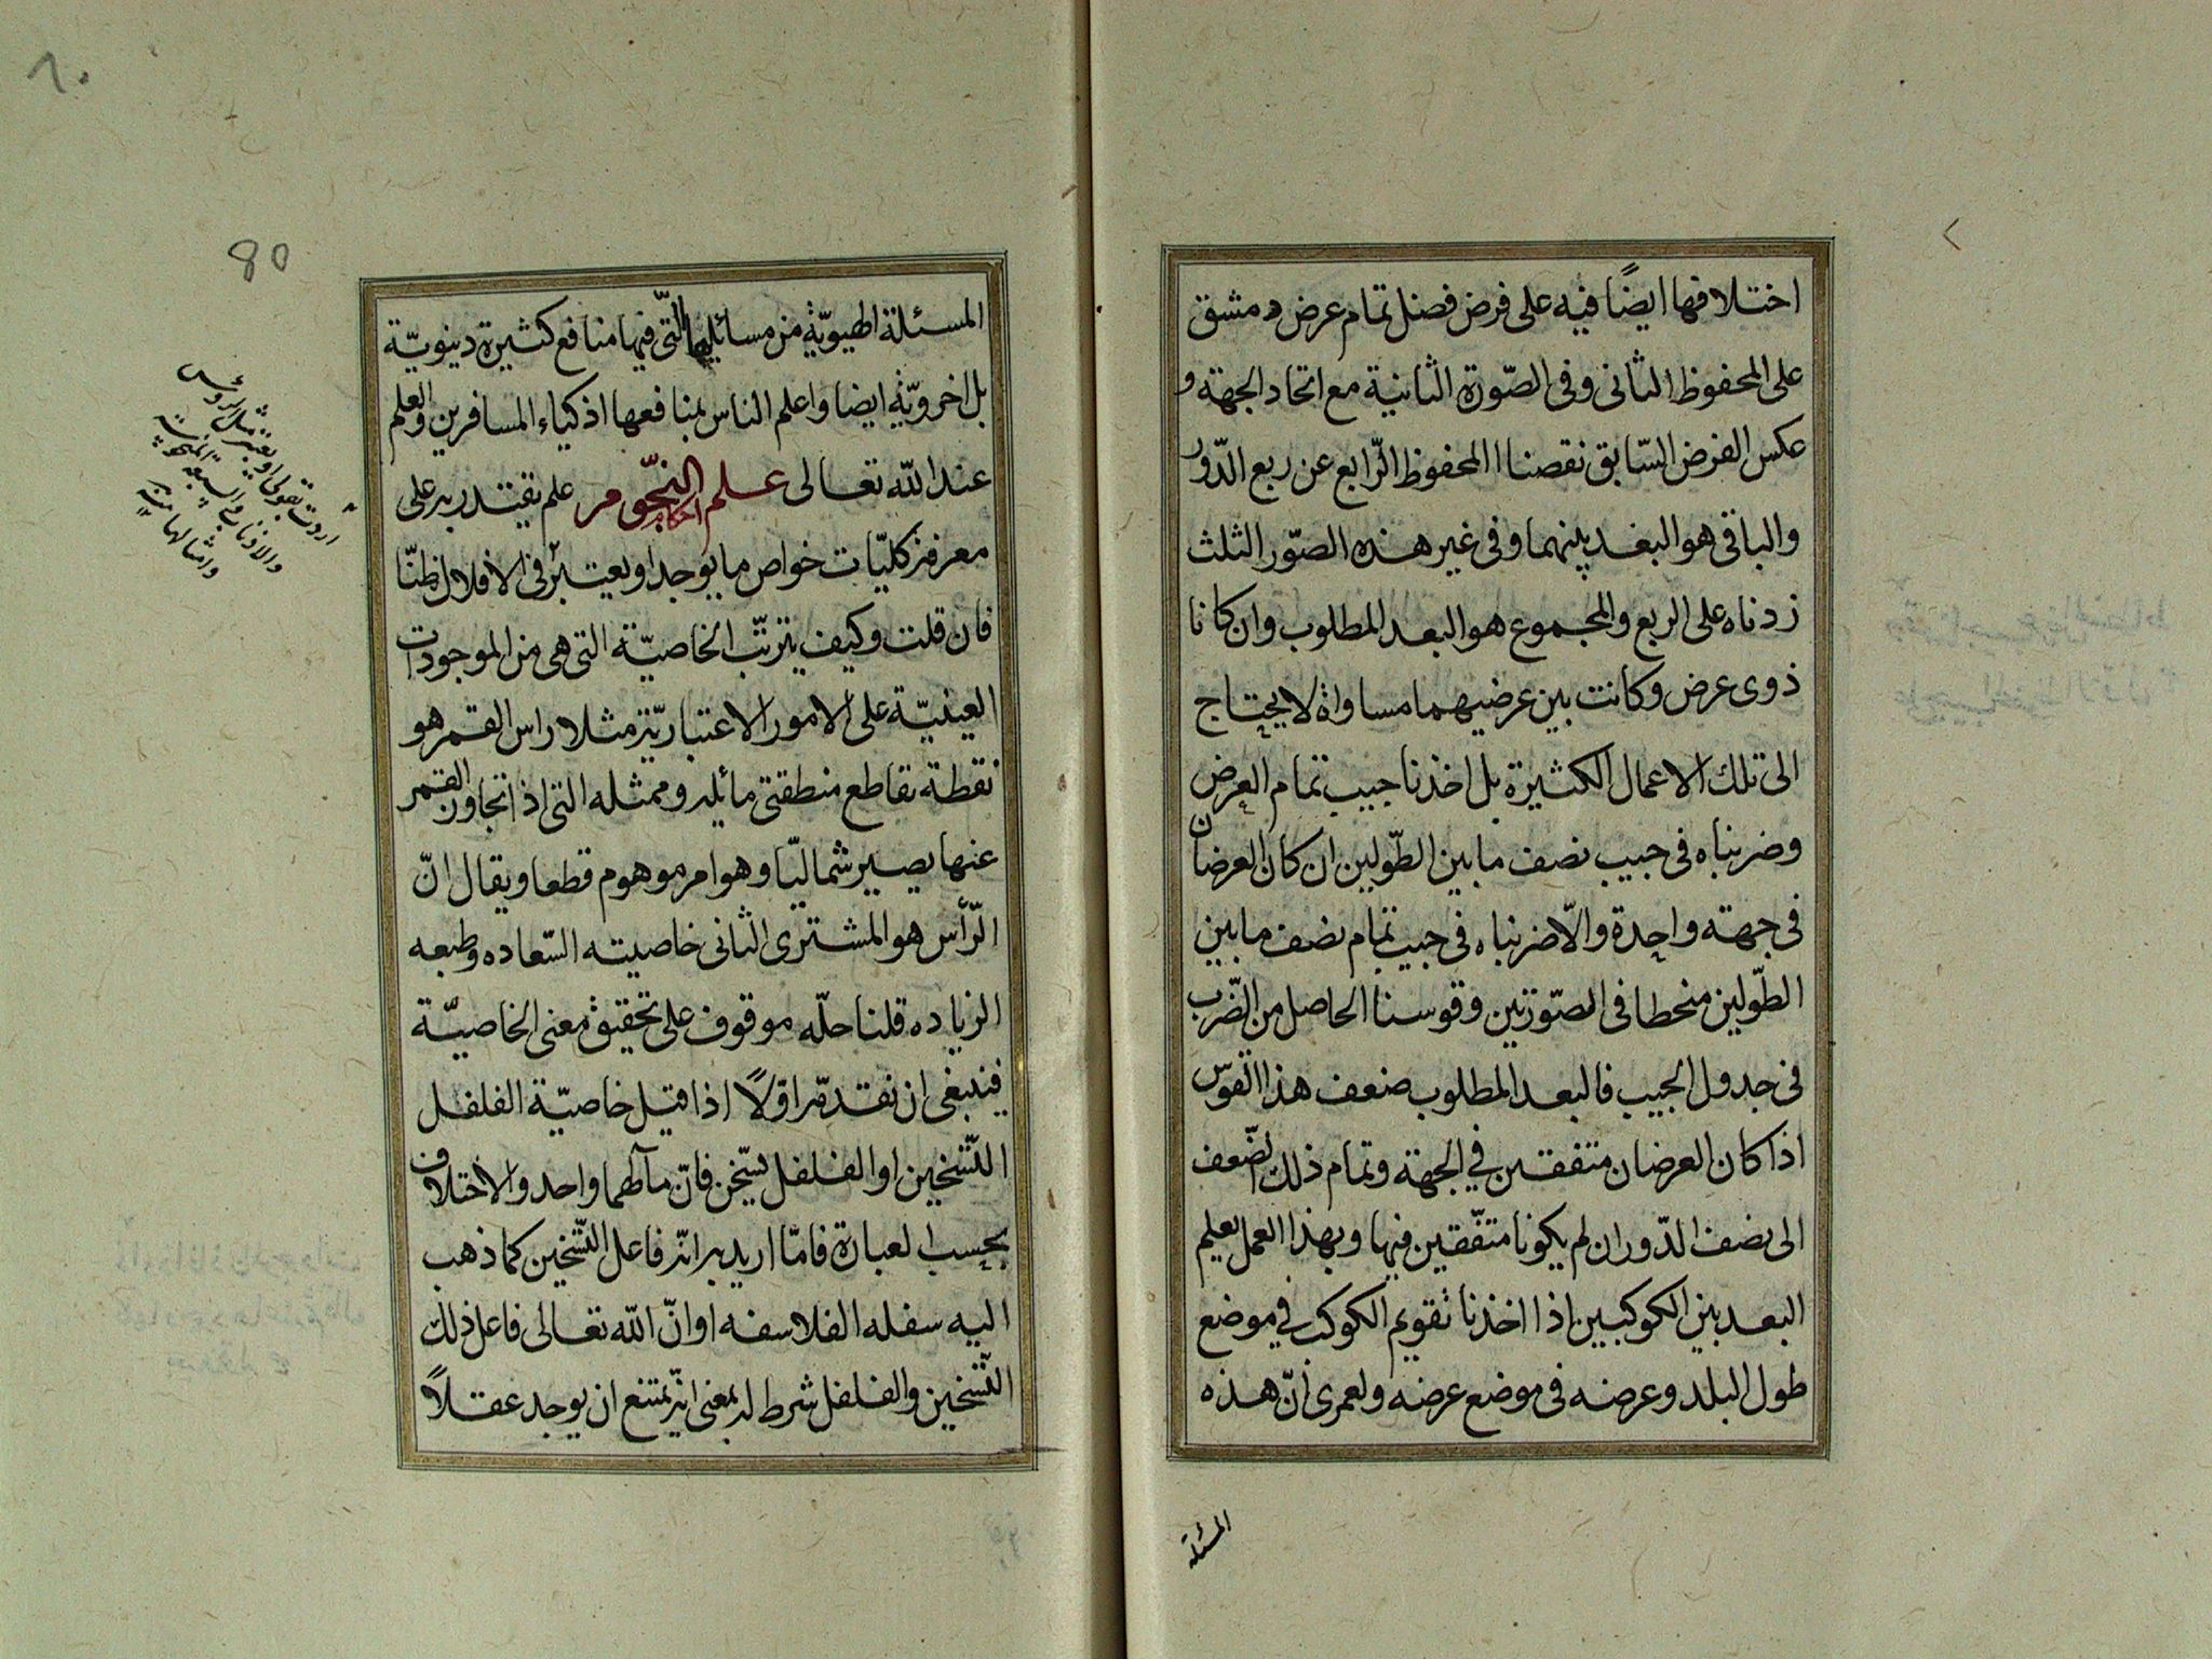 اختلافها ايضًا فيه على فرض فضل تمام عرض دمشق
على المحفوظ الثانى وفى الصّورة الثانية مع اتحاد الجهة و
عكس الفرض السّابق نقصنا المحفوظ الرّابع عن ربع الدّور
والباقى هو البعد بينهما وفى غير هذه الصّور الثلث
زدناه على الربع والمجموع هو البعد المطلوب وان كانا
ذوى عرض وكانت بين عرضيهما مساواة لا يحتاج
الى تلك الاعمال الكثيرة بل اخذنا جيب تمام العرض
وضربناه فى جيب نصف ما بين الطّولين ان كان العرضان
فى جهة واحدة والّا ضربناه فى جيب تمام نصف ما بين
الطّولين منحطا فى الصّورتين وقوسنا الحاصل من الضّرب
فى جدول الجيب فالبعد المطلوب ضعف هذا القوس
اذا كان العرضان متفقين في الجهة وتمام ذلك الضّعف
الى نصف الدّور ان لم يكونا متّفقين فيها وبهذا العمل يعلم
البعد بين الكوكبين اذا اخذنا تقويم الكوكب في موضع
طول البلد وعرضه فى موضع عرضه ولعمرى انّ هذه
المسئلة
80
المسئلة الهيويّة من مسائلها التّى فيها منافع كثيرة دينويّة
بل اخرويّة ايضا واعلم الناس بمنافعها اذكياء المسافرين والعلم
عند الله تعالى علم احكام النجّوم علم يقتدر به على
معرفة كليّات خواص ما يوجد او يعتبر فى الافلاك ظنّا
فان قلت وكيف يترتّب الخاصيّة التى هى من الموجودات
العينيّة على الامور الاعتباريّة مثلا راس القمر هو
نقطة تقاطع منطقتى مائله وممثله التى اذا تجاوز القمر
عنها يصير شماليّا وهو امر موهوم قطعا ويقال انّ
الرّأس هو المشترى الثانى خاصيته السّعاده وطبعه
الزياده قلنا حلّه موقوف على تحقيق معنى الخاصيّة
فينبغى ان نقدّم اوّلًا اذا قيل خاصيّة الفلفل
التّسخين او الفلفل يسّخن فانّ مآلهما واحد والاختلاف
بحسب العبارة فامّا اريد به انّه فاعل التّسخين كما ذهب
اليه سفله الفلاسفه او انّ الله تعالى فاعل ذلك
التّسخين والفلفل شرط له بمعنى انّه يمتنع ان يوجد عقلاً
اردت بقولى او يعتبر مثل الرؤس
والاذناب
وامثالها منه